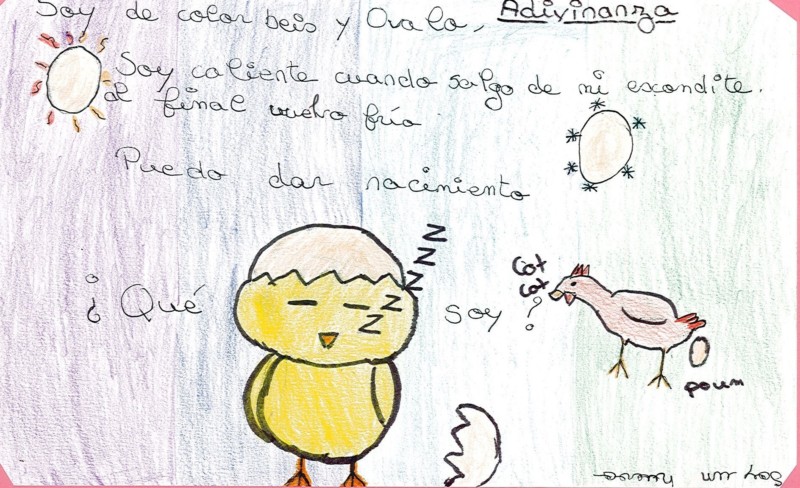 Adivinanza
Soy de color beis y Ovalo,
Soy caliente cuando salgo de mi escondite.
al final vuelvo frío
Puedo dar nacimiento
¿Qué soy?
z z z z z
Cot
Cot
poum
Soy un huevo